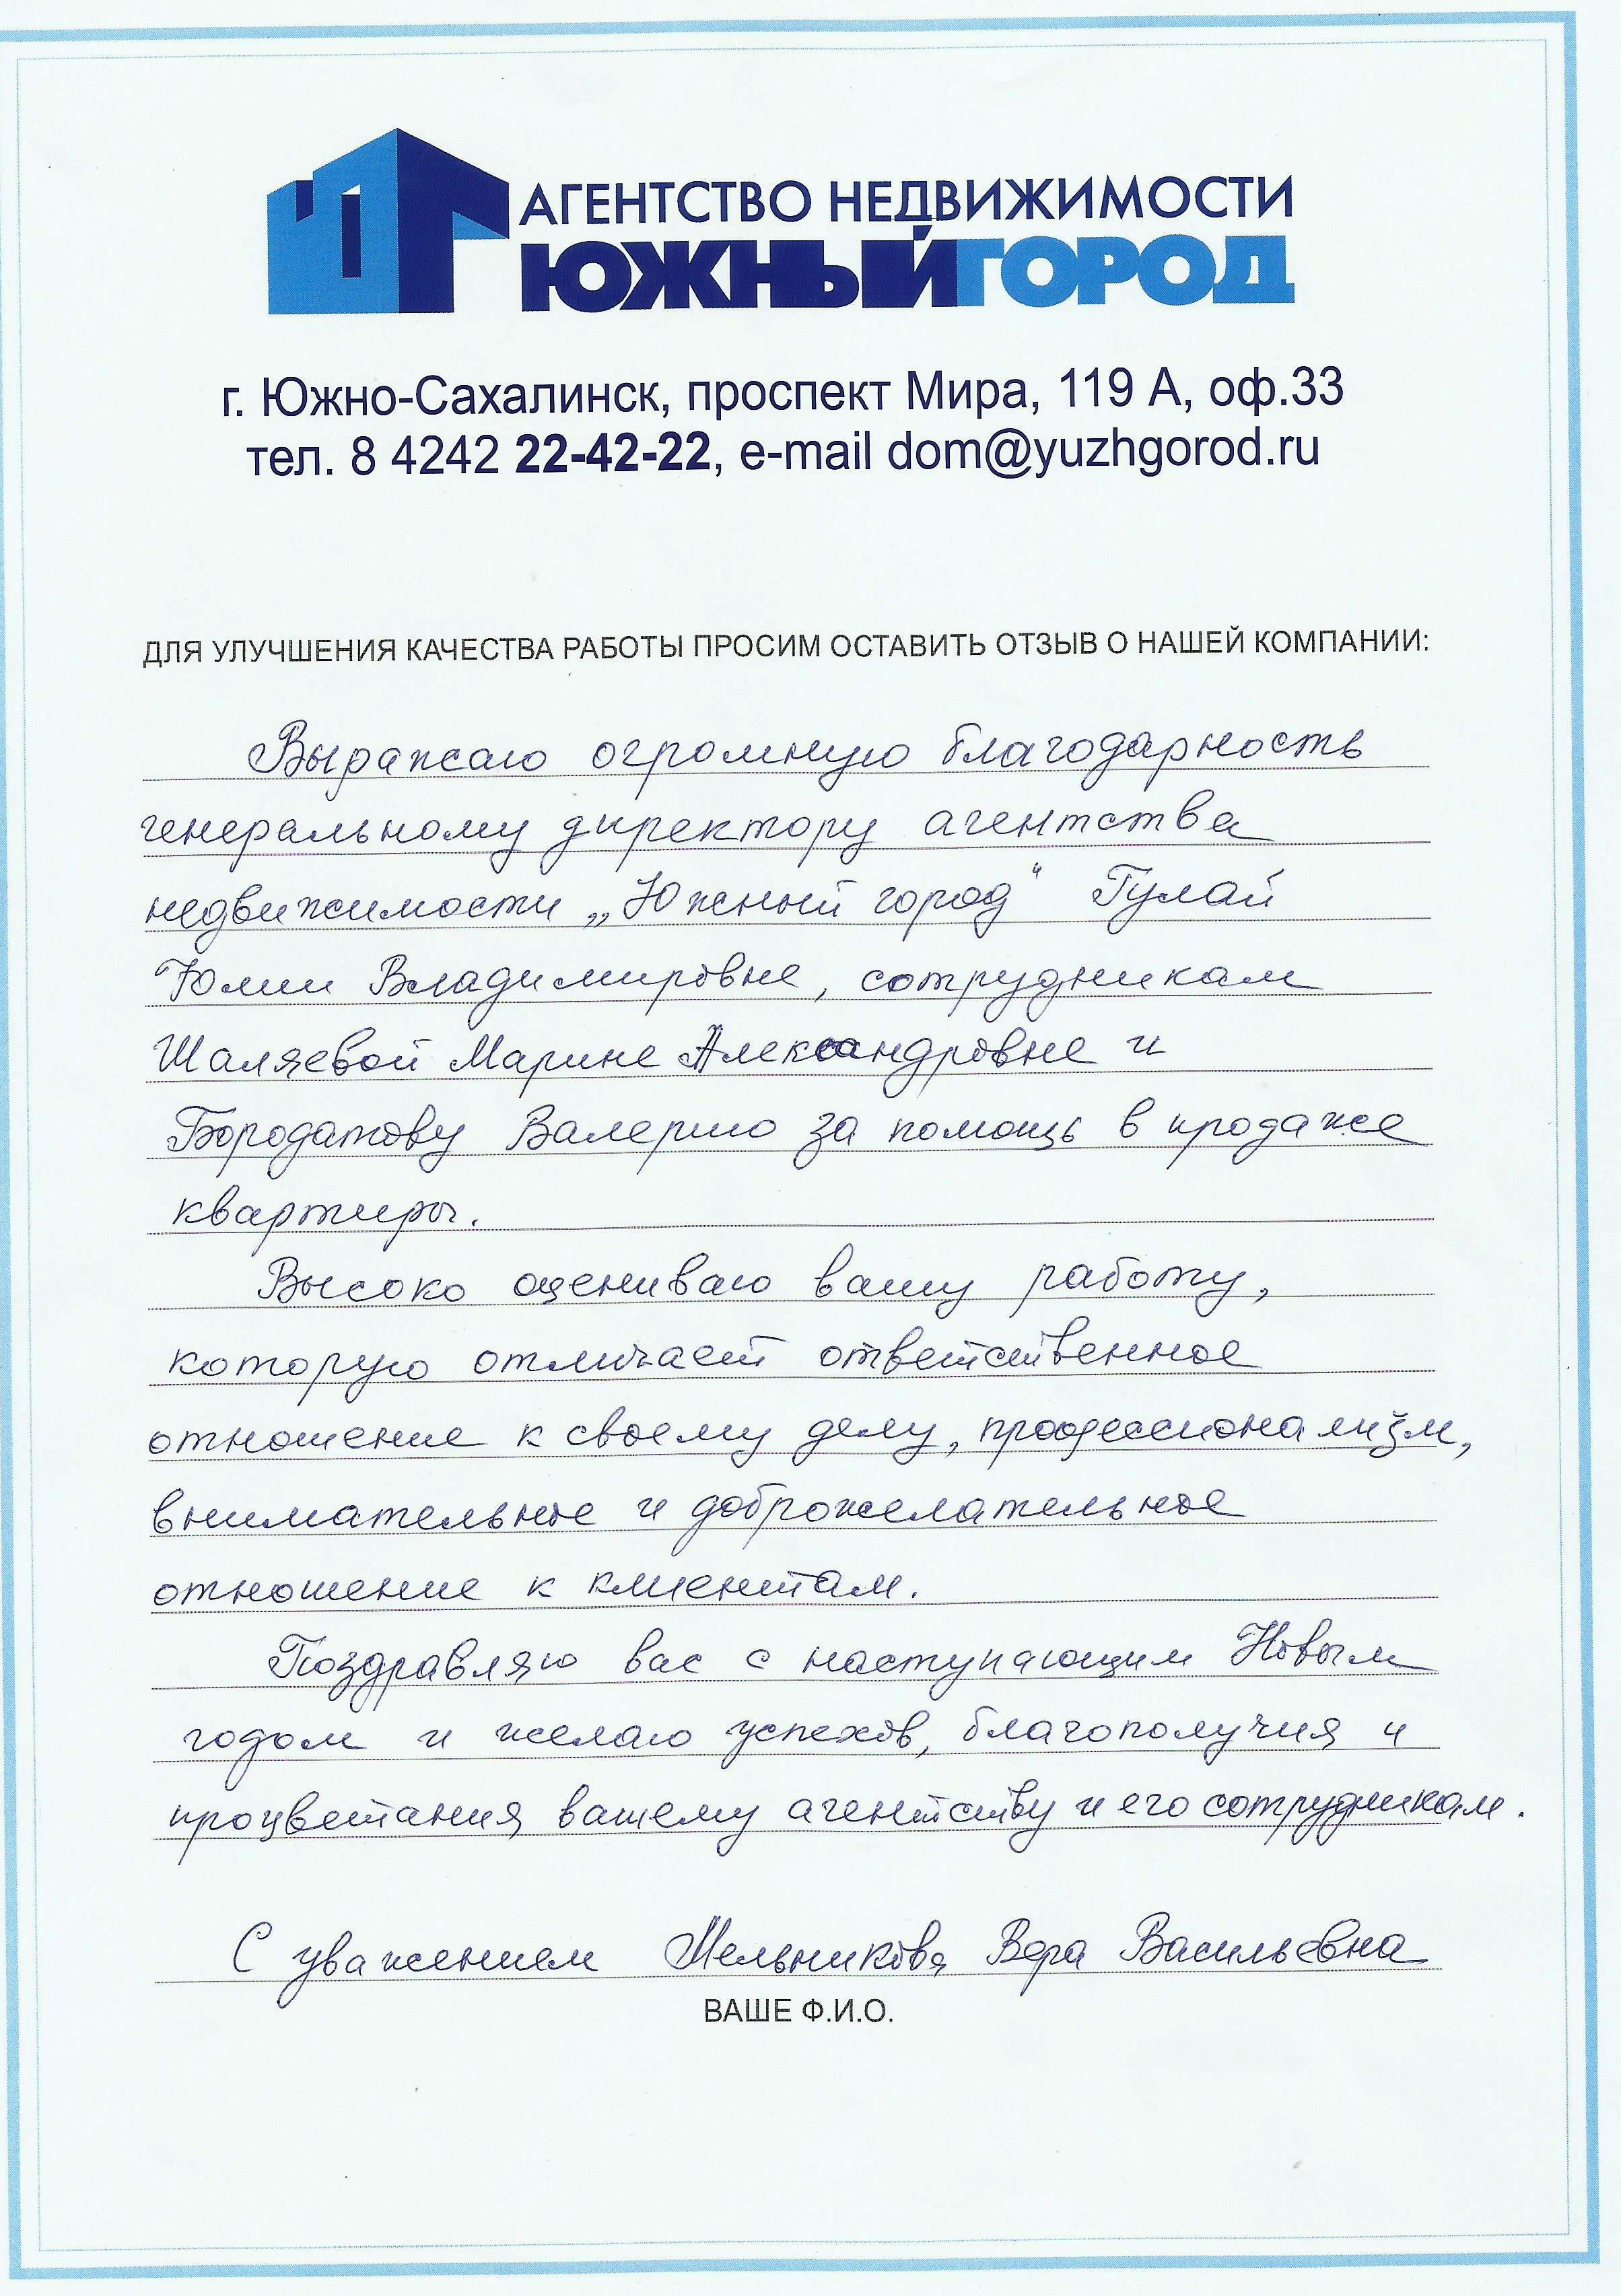 АГЕНТСТВО НЕДВИЖИМОСТИ
ЮЖНЫЙГОРОД
г. Южно-Сахалинск, проспект Мира, 119 А, оф.33
тел. 8 4242 22-42-22, e-mail dom@yuzhgorod.ru
ДЛЯ УЛУЧШЕНИЯ КАЧЕСТВА РАБОТЫ ПРОСИМ ОСТАВИТЬ ОТЗЫВ О НАШЕЙ КОМПАНИИ:
Выражаю огромную благодарность
генеральному директору агентства
недвижимости „Южный город" Гулай
Юлии Владимировне, сотрудникам
Шаляевой Марине Александровне и
Бородатову Валерию за помощь в продаже
квартиры.
Высоко оцениваю вашу работу,
которую отличает ответственное
отношение к своему делу, профессионализм,
внимательное и доброжелательное
отношение к клиентам.
Поздравляю вас с наступающим Новым
годом и желаю успехов, благополучия и
процветания вашему агентству и его сотрудникам.
С уважением Мельникова Вера Васильевна
ВАШЕ Ф.И.О.